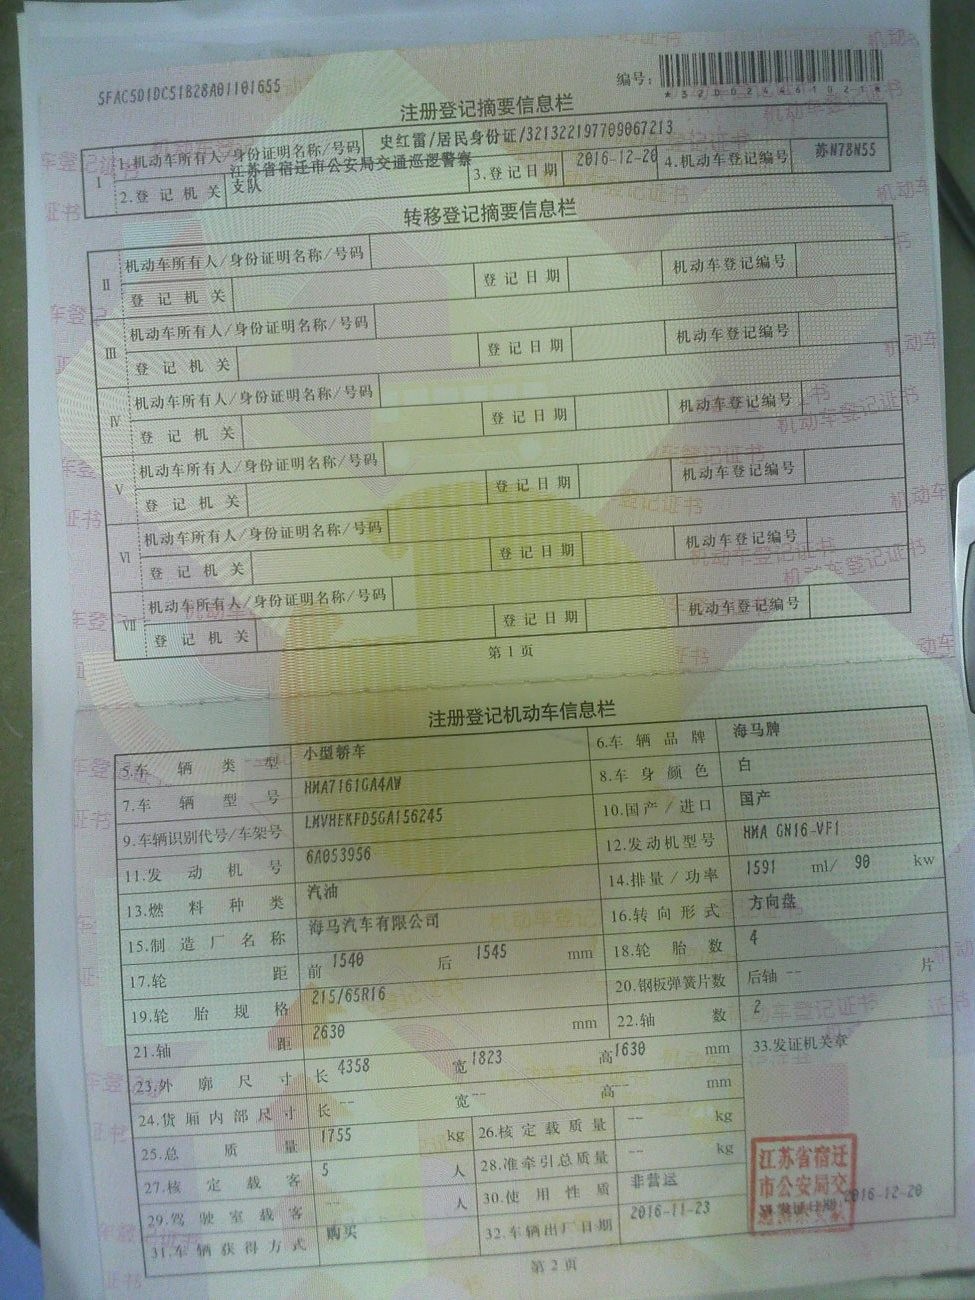 5FAC5D1DC51B28A01101655
编号:
*320024461021*
注册登记摘要信息栏
1.机动车所有人/身份证明名称/号码 史红雷/居民身份证/321322197709067213
I
2.登记机关 江苏省宿迁市公安局交通巡逻警察支队 3.登记日期 2016-12-20 4.机动车登记编号 苏N78N55
转移登记摘要信息栏
机动车所有人/身份证明名称/号码
II
登记机关 登记日期 机动车登记编号
机动车所有人/身份证明名称/号码
III
登记机关 登记日期 机动车登记编号
机动车所有人/身份证明名称/号码
IV
登记机关 登记日期 机动车登记编号
机动车所有人/身份证明名称/号码
V
登记机关 登记日期 机动车登记编号
机动车所有人/身份证明名称/号码
VI
登记机关 登记日期 机动车登记编号
机动车所有人/身份证明名称/号码
VII
登记机关 登记日期 机动车登记编号
第1页
注册登记机动车信息栏
5.车辆类型 小型轿车 6.车辆品牌 海马牌
7.车辆型号 HMA7161GA4AW 8.车身颜色 白
9.车辆识别代号/车架号 LMVHEKFD5GA156245 10.国产/进口 国产
11.发动机号 6A053956 12.发动机型号 HMA GN16-VF1
13.燃料种类 汽油 14.排量/功率 1591 ml/ 90 kw
15.制造厂名称 海马汽车有限公司 16.转向形式 方向盘
17.轮距 前 1540 后 1545 mm 18.轮胎数 4
19.轮胎规格 215/65R16 20.钢板弹簧片数 后轴 -- 片
21.轴距 2630 mm 22.轴数 2
23.外廓尺寸 长 4358 宽 1823 高 1630 mm 33.发证机关章
24.货厢内部尺寸 长 -- 宽 -- 高 -- mm
25.总质量 1755 kg 26.核定载质量 -- kg
27.核定载客 5 人 28.准牵引总质量 -- kg
29.驾驶室载客 -- 人 30.使用性质 非营运
31.车辆获得方式 购买 32.车辆出厂日期 2016-11-23 34.发证日期 2016-12-20
江苏省宿迁
市公安局交
第2页